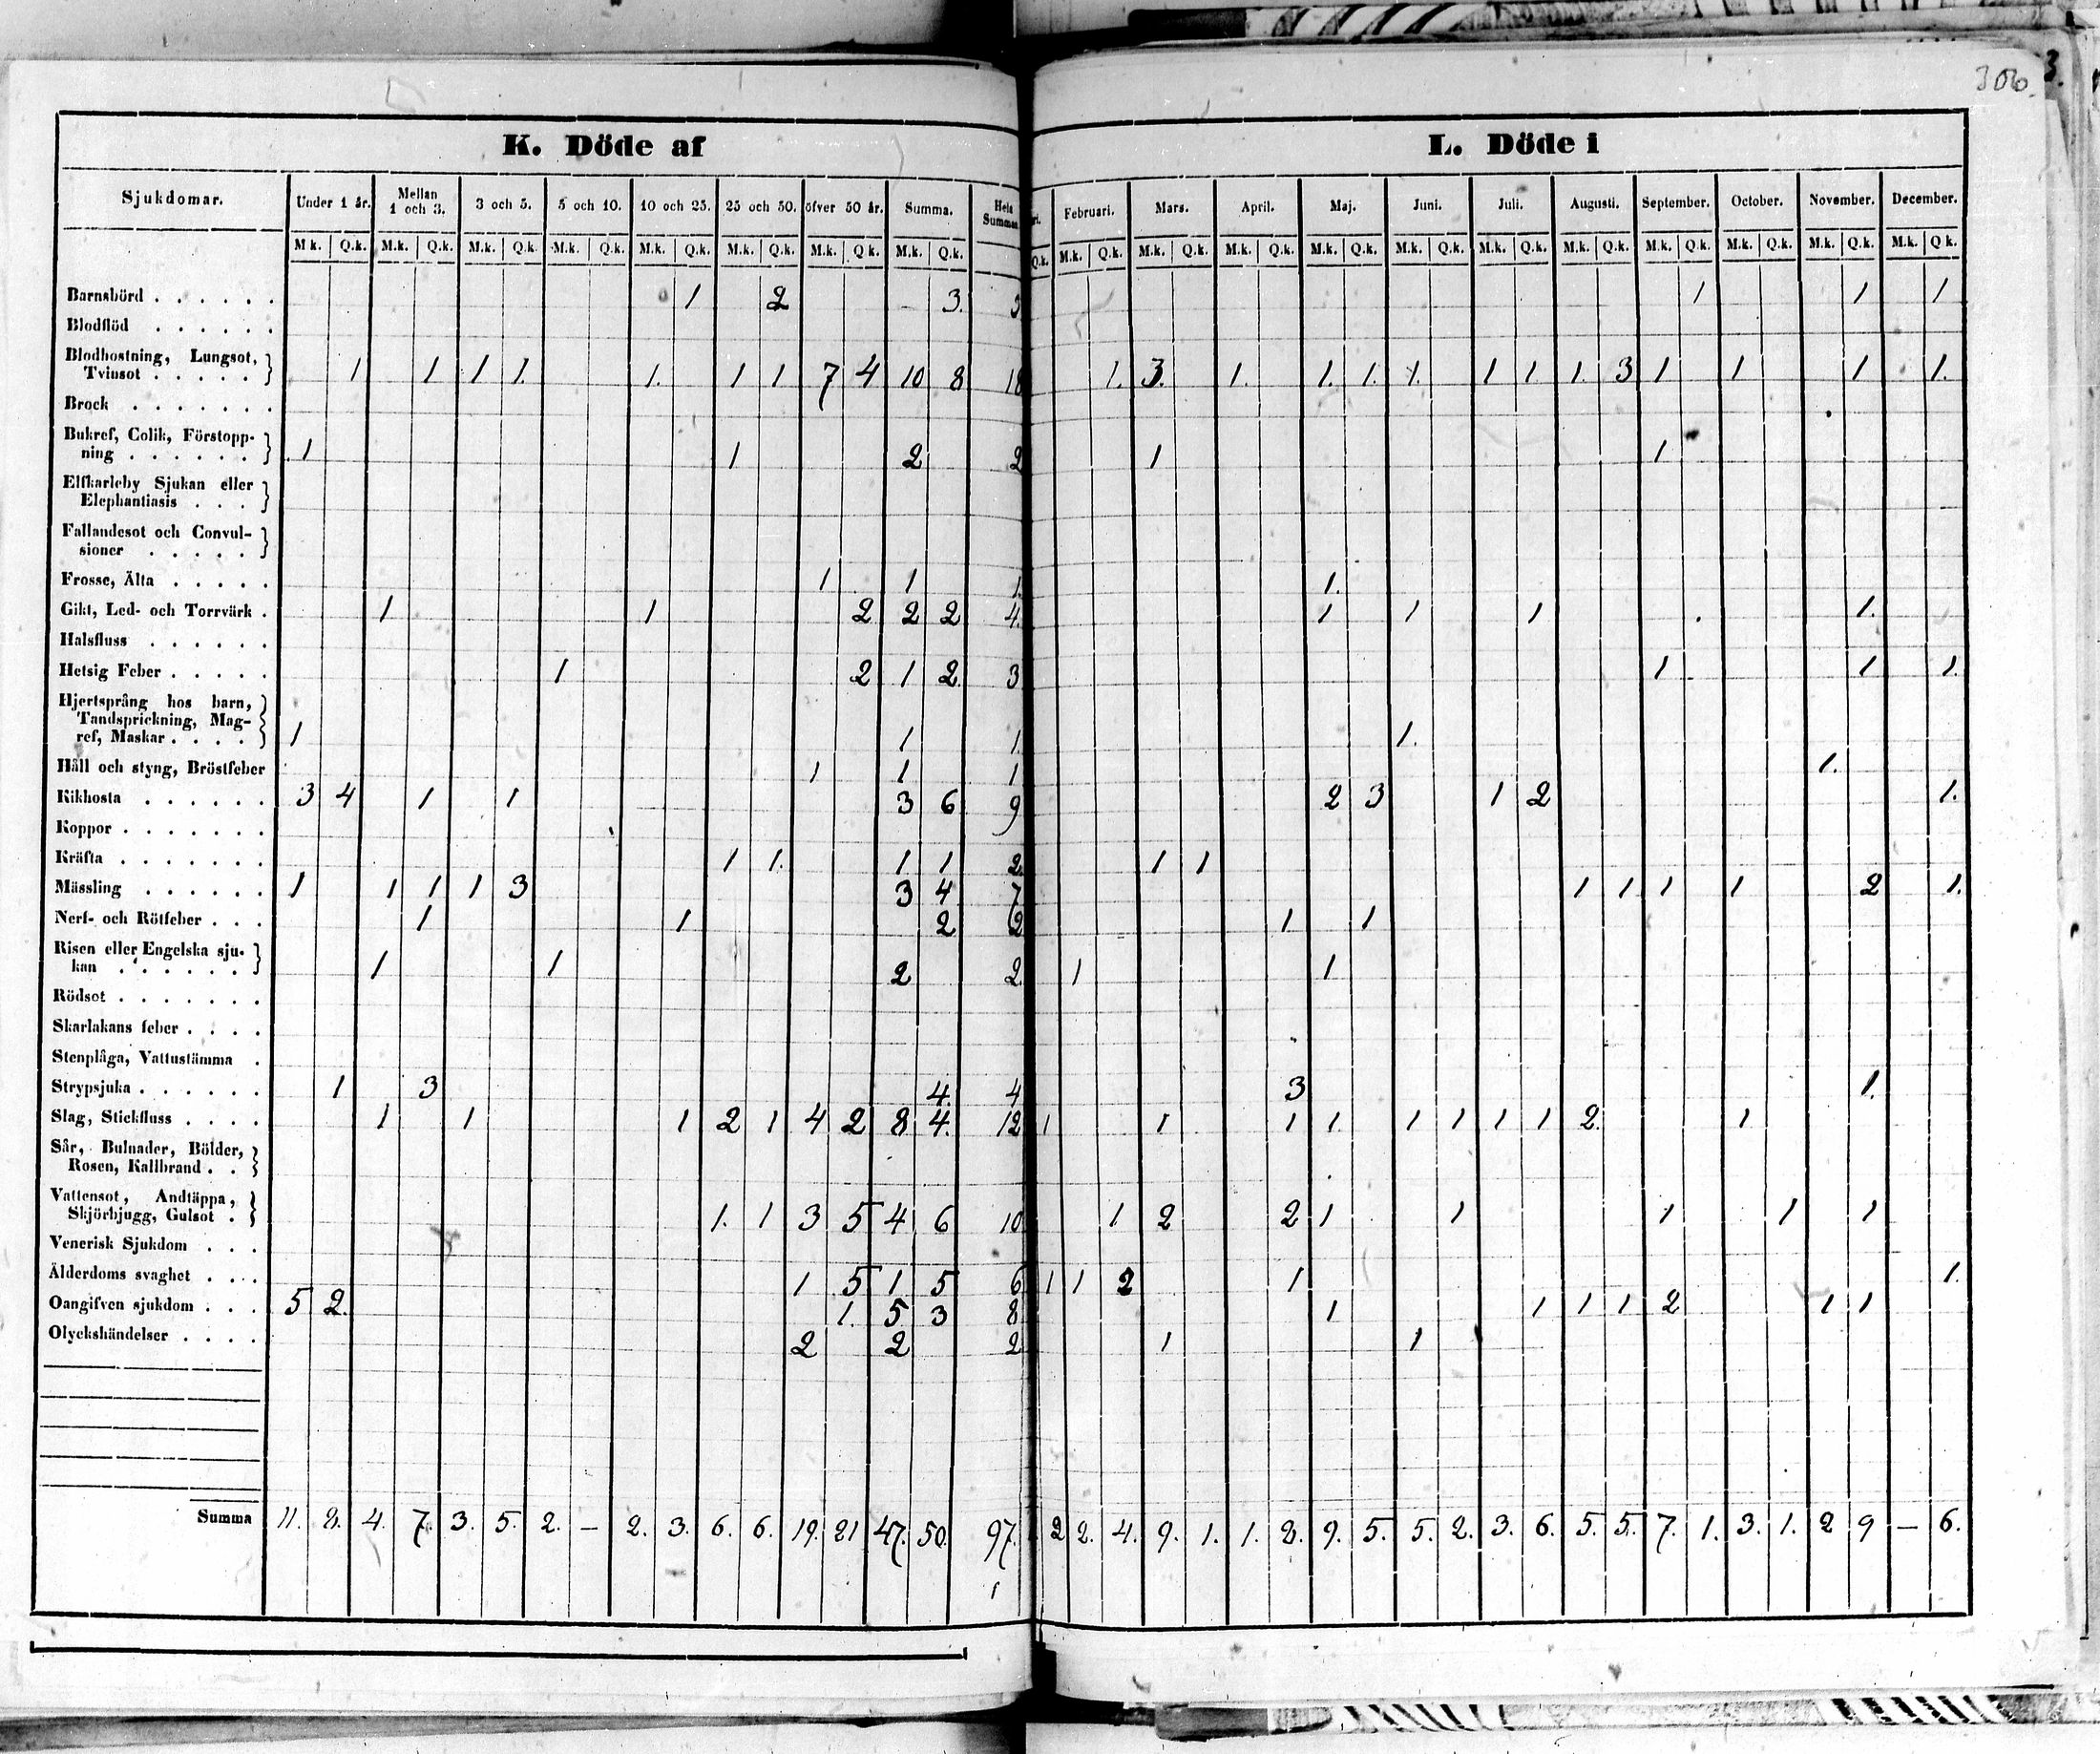 306.
3.
K. Döde af
L. Döde i
Sjukdomar. Under 1 år. Mellan 1 och 3. 3 och 5. 5 och 10. 10 och 25. 25 och 50. öfver 50 år. Summa. Hela Summan. Februari. Mars. April. Maj. Juni. Juli. Augusti. September. October. November. December.
M.k. Q.k. M.k. Q.k. M.k. Q.k. M.k. Q.k. M.k. Q.k. M.k. Q.k. M.k. Q.k. M.k. Q.k. Q.k. M.k. Q.k. M.k. Q.k. M.k. Q.k. M.k. Q.k. M.k. Q.k. M.k. Q.k. M.k. Q.k. M.k. Q.k. M.k. Q.k. M.k. Q.k. M.k. Q.k.
Barnsbörd . . . . . . 1 2 3. 3 1 1 1
Blodflöd . . . . . .
Blodhostning, Lungsot,
Tvinsot . . . . . 1 1 1 1. 1. 1 1 7 4 10 8 18 1. 3. 1. 1. 1. 1. 1 1 1. 3 1 1 1 1.
Brock . . . . . . .
Bukref, Colik, Förstopp-
ning . . . . . . 1 1 2 2 1 1
Elfkarleby Sjukan eller
Elephantiasis . . .
Fallandesot och Convul-
sioner . . . . .
Frosse, Älta . . . . . 1 1 1. 1.
Gikt, Led- och Torrvärk . 1 1 2 2 2 4. 1 1 1 1.
Halsfluss . . . . . .
Hetsig Feber . . . . . 1 2 1 2. 3 1 1 1.
Hjertsprång hos barn,
Tandsprickning, Mag-
ref, Maskar . . . . 1 1 1. 1.
Håll och styng, Bröstfeber 1 1 1 1.
Kikhosta . . . . . . 3 4 1 1 3 6 9 2 3 1 2 1.
Koppor . . . . . . .
Kräfta . . . . . . . 1 1. 1 1 2 1 1
Mässling . . . . . . 1 1 1 1 3 3 4 7 1 1 1 1 2 1.
Nerf- och Rötfeber . . . 1 1 2 2 1 1
Risen eller Engelska sju-
kan . . . . . . 1 1 2 2 1 1
Rödsot . . . . . . .
Skarlakans feber . . . .
Stenplåga, Vattustämma .
Strypsjuka . . . . . . 1 3 4. 4 3 1.
Slag, Stickfluss . . . . 1 1 1 2 1 4 2 8 4. 12 1 1 1 1. 1 1 1 1 2. 1
Sår, Bulnader, Bölder,
Rosen, Kallbrand . .
Vattensot, Andtäppa,
Skjörbjugg, Gulsot . 1. 1 3 5 4 6 10 1 2 2 1 1 1 1 1
Venerisk Sjukdom . . .
Ålderdoms svaghet . . . 1 5 1 5 6 1 1 2 1 1.
Oangifven sjukdom . . . 5 2. 1. 5 3 8 1 1 1 1 2 1 1
Olyckshändelser . . . . 2 2 2 1 1
Summa 11. 8. 4. 7. 3. 5. 2. – 2. 3. 6. 6. 19. 21 47. 50. 97. 2 2. 4. 9. 1. 1. 8. 9. 5. 5. 2. 3. 6. 5. 5. 7. 1. 3. 1. 2 9 – 6.